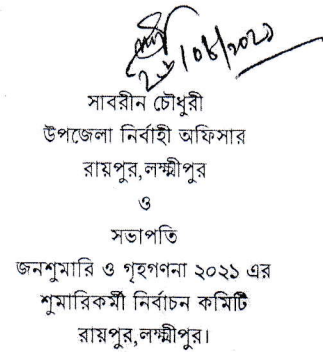 সাবরীন চৌধুরী
উপজেলা নির্বাহী অফিসার
রায়পুর,লক্ষ্মীপুর
ও
সভাপতি
জনশুমারি ও গৃহগণনা ২০২১ এর
শুমারিকর্মী নির্বাচন কমিটি
রায়পুর,লক্ষ্মীপুর।